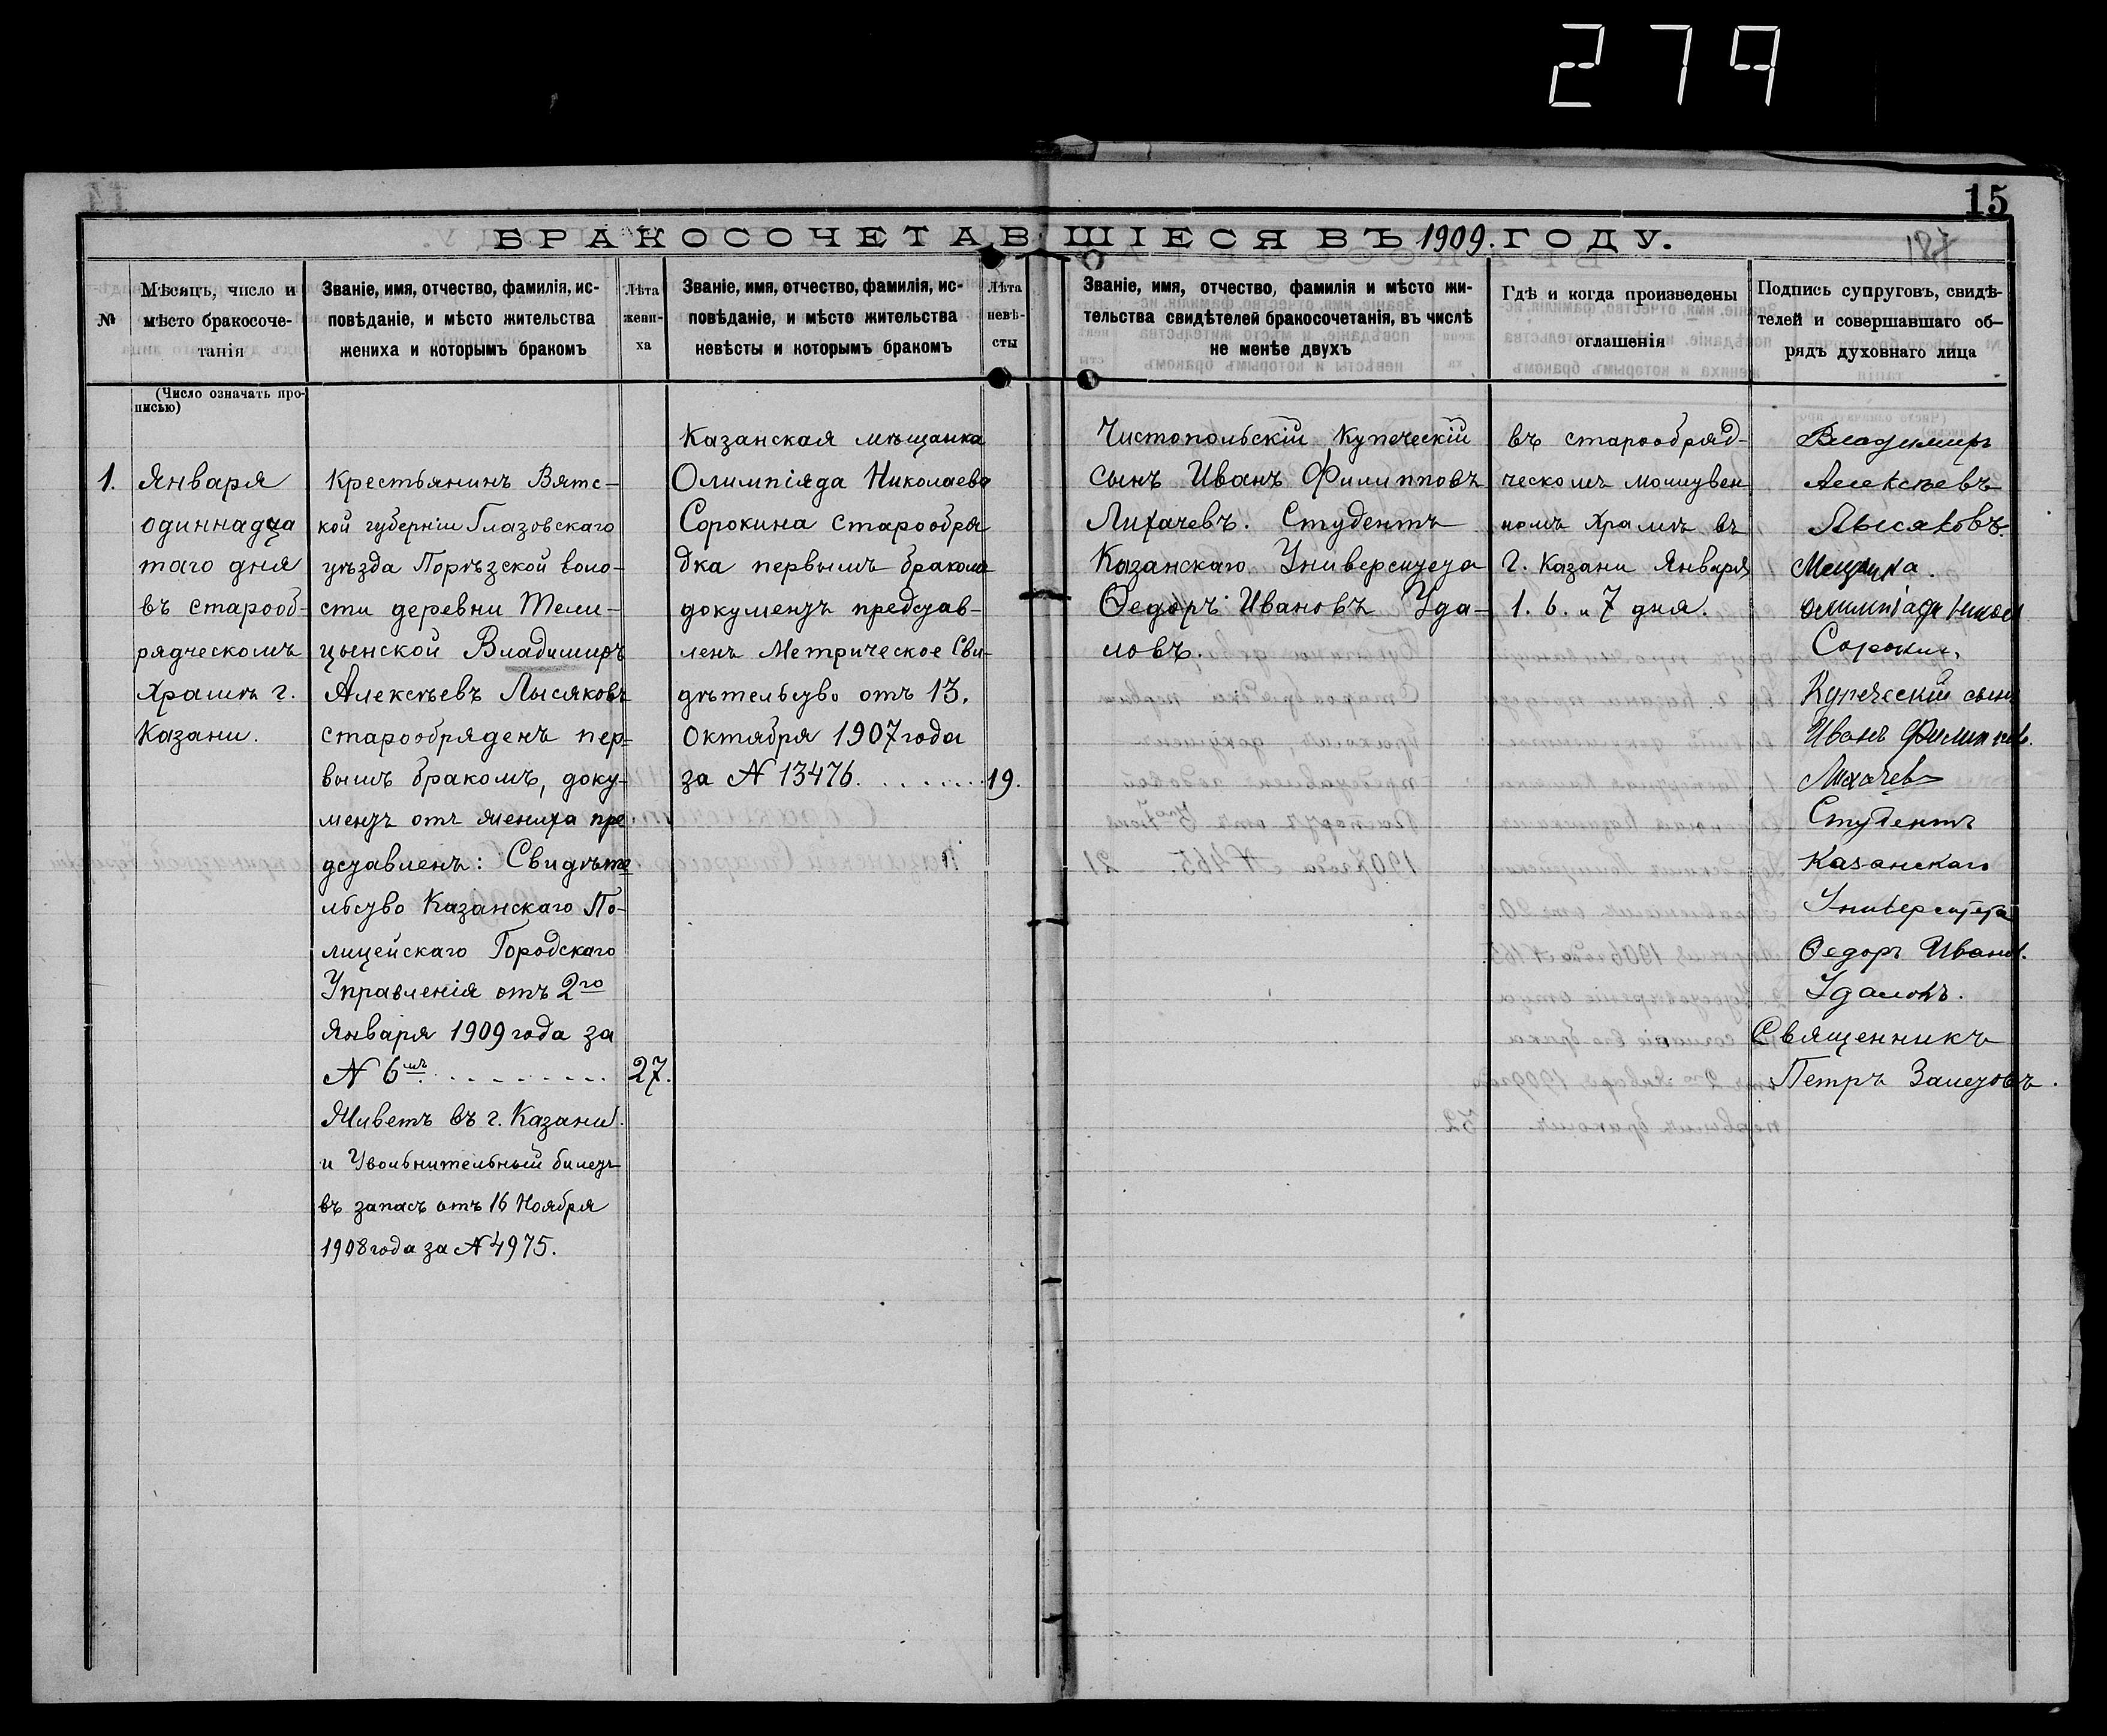 279
15
БРАКОСОЧЕТАВШІЕСЯ ВЪ 1909. ГОДУ.
№
Мѣсяцъ, число и
мѣсто бракосоче-
танія
Званіе, имя, отчество, фамилія, ис-
повѣданіе, и мѣсто жительства
жениха и которымъ бракомъ
Лѣта
жени-
ха
Званіе, имя, отчество, фамилія, ис-
повѣданіе, и мѣсто жительства
невѣсты и которымъ бракомъ
Лѣта
невѣ-
сты
Званіе, имя, отчество, фамилія и мѣсто жи-
тельства свидѣтелей бракосочетанія, въ числѣ
не менѣе двухъ
Гдѣ и когда произведены
оглашенія
Подпись супруговъ, свидѣ-
телей и совершавшаго об-
рядъ духовнаго лица
(Число означать про-
писью)
1.
Января
одиннадца
таго дня
въ старооб-
рядческомъ
Храмѣ г.
Казани.
Крестьянинъ Вятс-
кой губерніи Глазовскаго
уѣзда Порѣзской воло-
сти деревни Тели-
цынской Владимиръ
Алексѣевъ Лысяковъ
старообряденъ пер-
вымъ бракомъ, доку-
ментъ отъ жениха пре
дставленъ: Свидѣте
льство Казанскаго По-
лицейскаго Городскаго
Управленія отъ 2го
Января 1909 года за
№ 6мъ. . . . . . . . .
Живетъ въ г. Казани.
и Увольнительный билетъ
въ запасъ отъ 16 Ноября
1908 года за № 4975.
27.
Казанская мѣщанка
Олимпіяда Николаева
Сорокина старообря
дка первымъ бракомъ
документъ представ-
ленъ Метрическое Сви-
дѣтельство отъ 13.
Октября 1907 года
за № 13476. . . . . . .
19.
Чистопольскій Купеческій
сынъ Иванъ Филипповъ
Лихачевъ. Студентъ
Казанскаго Университета
Ѳедоръ Ивановъ Уда-
ловъ.
въ старообряд-
ческомъ молитвен
номъ Храмѣ въ
г. Казани Января
1. 6. и 7 дня.
Владимиръ
Алексѣевъ
Лысяковъ.
Мещанка.
Олимпіада Никол
Сорокин.
Купеческій сынъ
Иванъ Филиппов.
Лихачев
Студентъ
Казанскаго
Университета
Ѳедоръ Иванов.
Удаловъ.
Священникъ
Петръ Залетовъ.